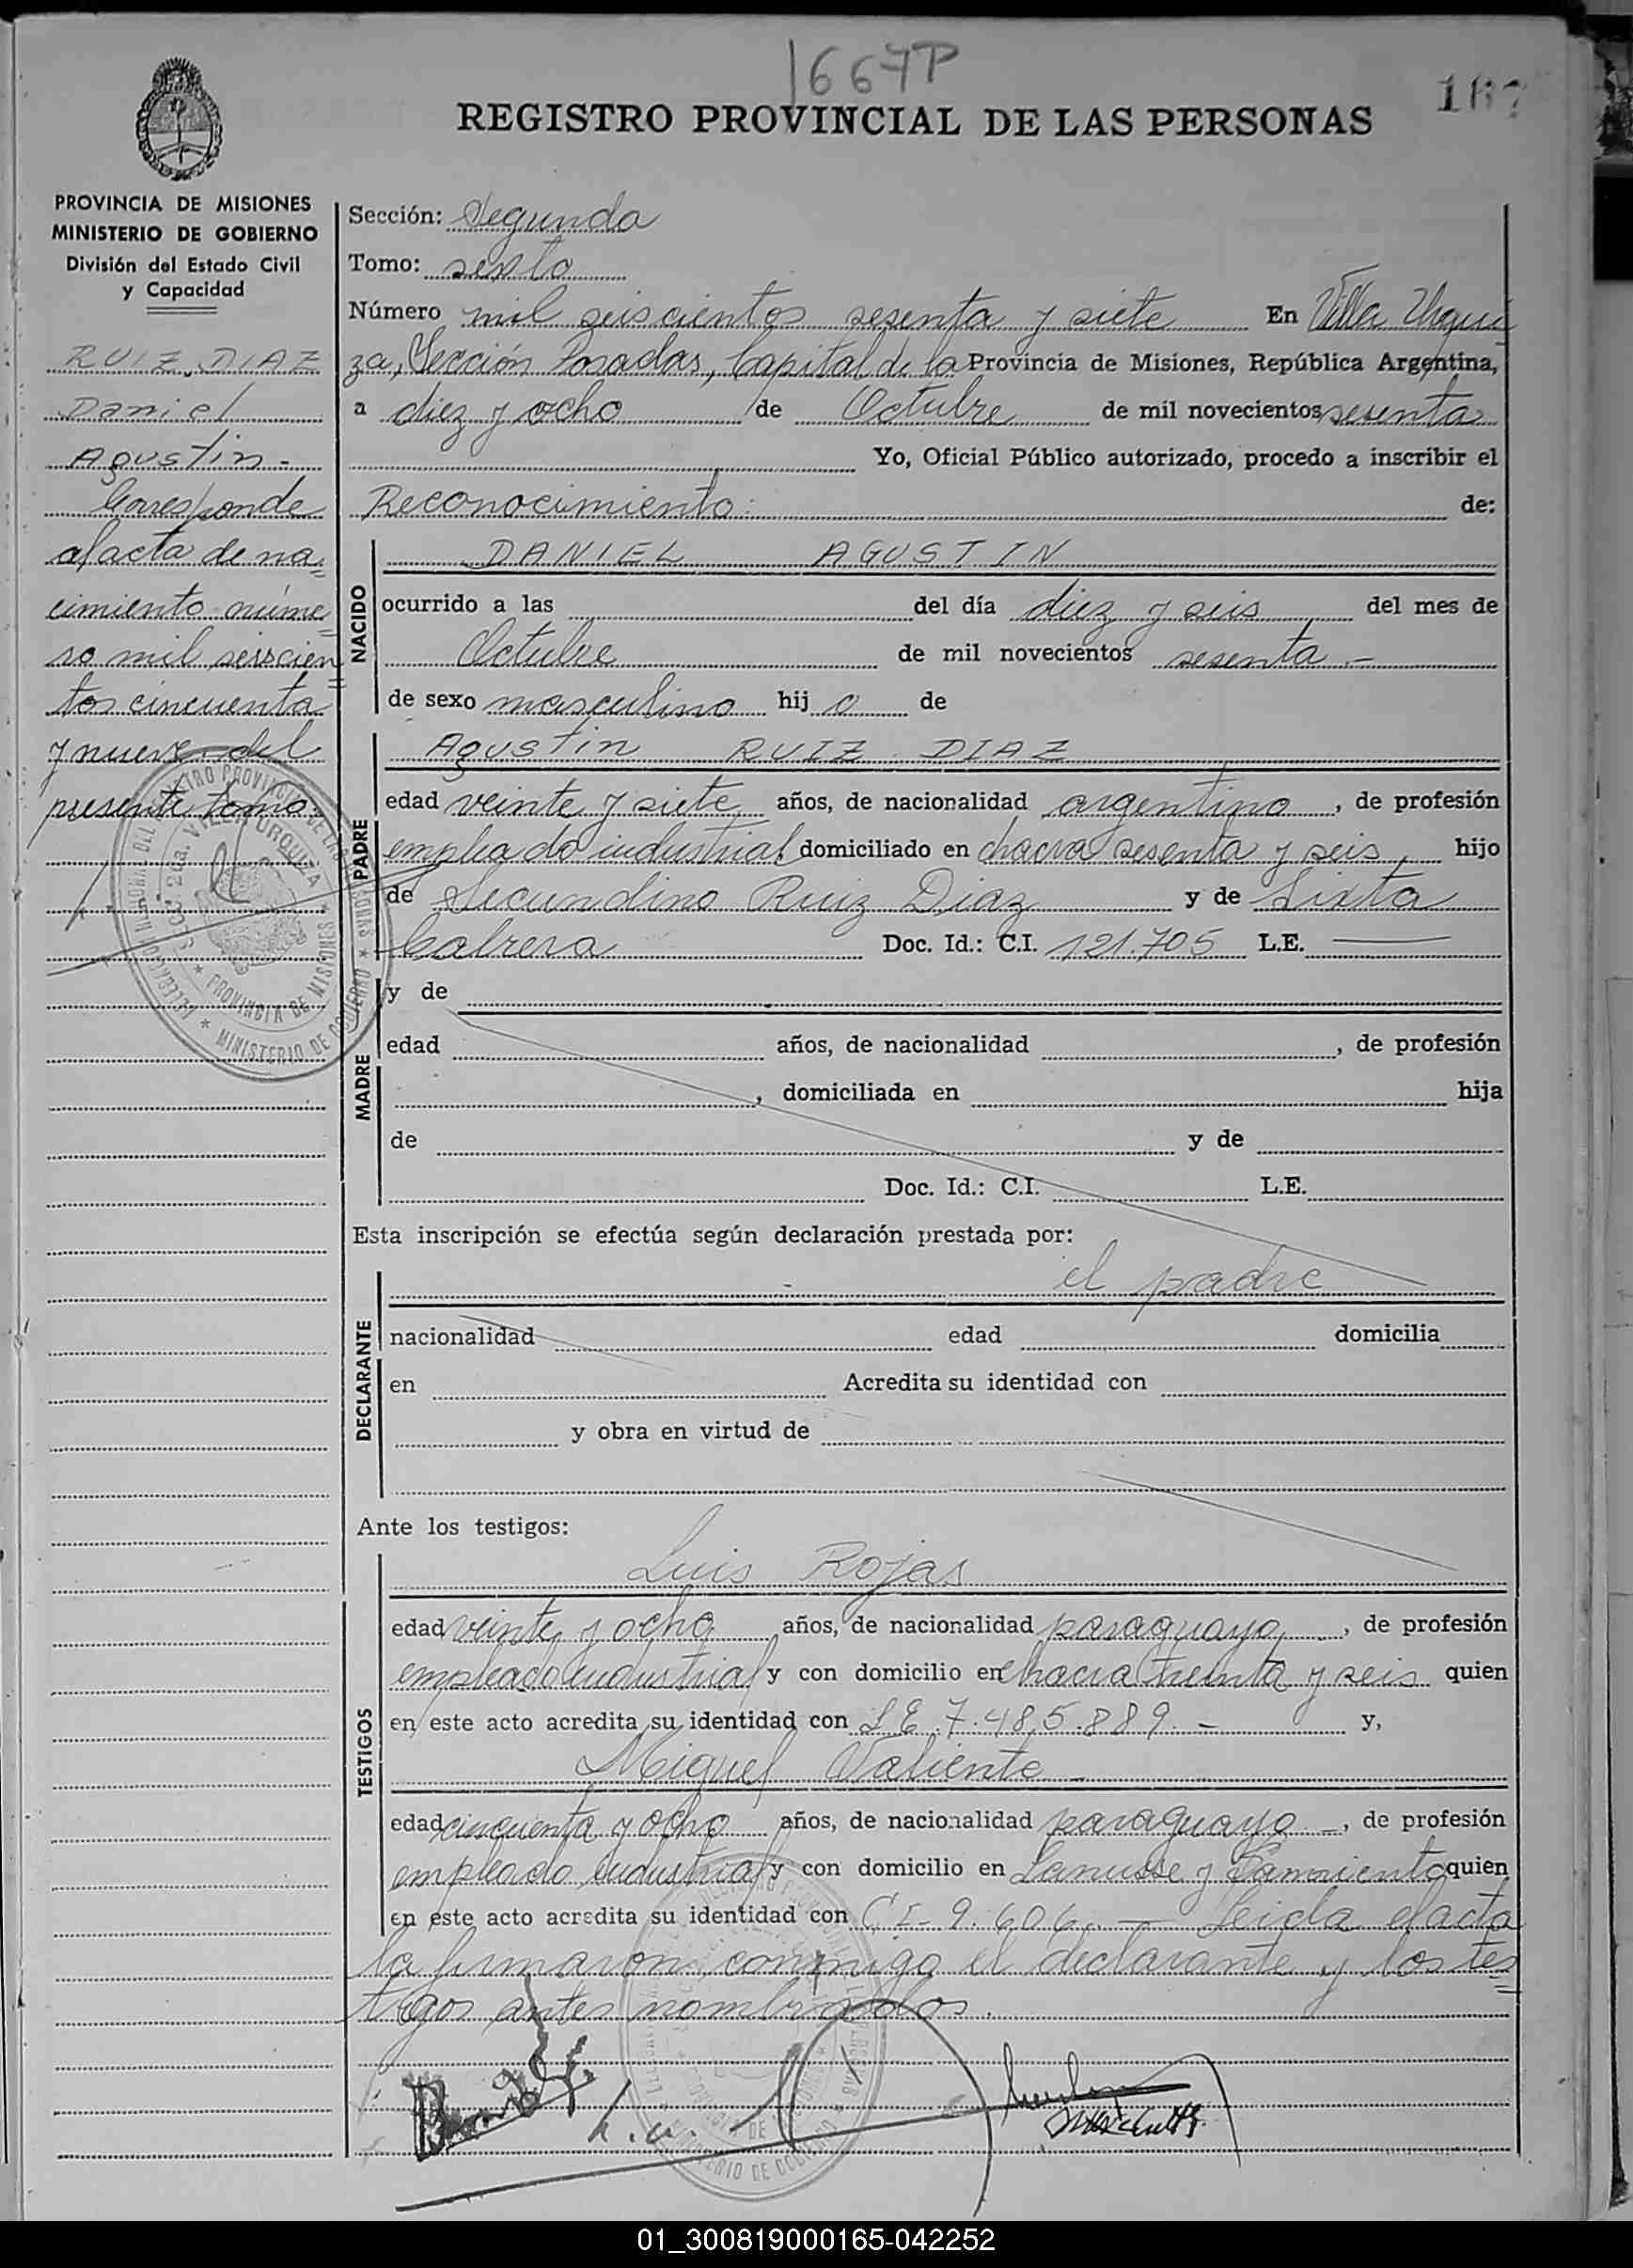 1667P
167
REGISTRO PROVINCIAL DE LAS PERSONAS
PROVINCIA DE MISIONES
MINISTERIO DE GOBIERNO
División del Estado Civil
y Capacidad
RUIZ DIAZ
Daniel
Agustin.-
Corresponde
al acta de na=
cimiento núme=
ro mil seiscien=
tos cincuenta
y nueve del
presente tomo.
Sección: Segunda
Tomo: sexto
Número mil seiscientos sesenta y siete En Villa Urqui
za, Sección Posadas, Capital de la Provincia de Misiones, República Argentina,
a diez y ocho de Octubre de mil novecientos sesenta
Yo, Oficial Público autorizado, procedo a inscribir el
Reconocimiento de:
NACIDO
DANIEL AGUSTIN
ocurrido a las del día diez y seis del mes de
Octubre de mil novecientos sesenta.-
de sexo masculino hij o de
PADRE
Agustin RUIZ DIAZ
edad veinte y siete años, de nacionalidad argentino, de profesión
empleado industrial domiciliado en chacra sesenta y seis, hijo
de Secundino Ruiz Diaz y de Sixta
Cabrera Doc. Id.: C.I. 121.705 L.E.
MADRE
y de
edad años, de nacionalidad , de profesión
, domiciliada en hija
de y de
Doc. Id.: C.I. L.E.
Esta inscripción se efectúa según declaración prestada por:
el padre
DECLARANTE
nacionalidad edad domicilia
en Acredita su identidad con
y obra en virtud de
Ante los testigos:
TESTIGOS
Luis Rojas
edad veinte y ocho años, de nacionalidad paraguaya, de profesión
empleado industrial y con domicilio en chacra treinta y seis quien
en este acto acredita su identidad con L E 7.485.889.- y,
Miguel Valiente
edad cincuenta y ocho años, de nacionalidad paraguayo -, de profesión
empleado industrial y con domicilio en Lanusse y Sarmiento quien
en este acto acredita su identidad con C I- 9.606.- Leida el acta
la firmaron conmigo el declarante y los tes=
tigos antes nombrados.
SECC. 2da. VILLA URQUIZA
PROVINCIA DE MISIONES
MINISTERIO DE GOBIERNO
01_300819000165-042252